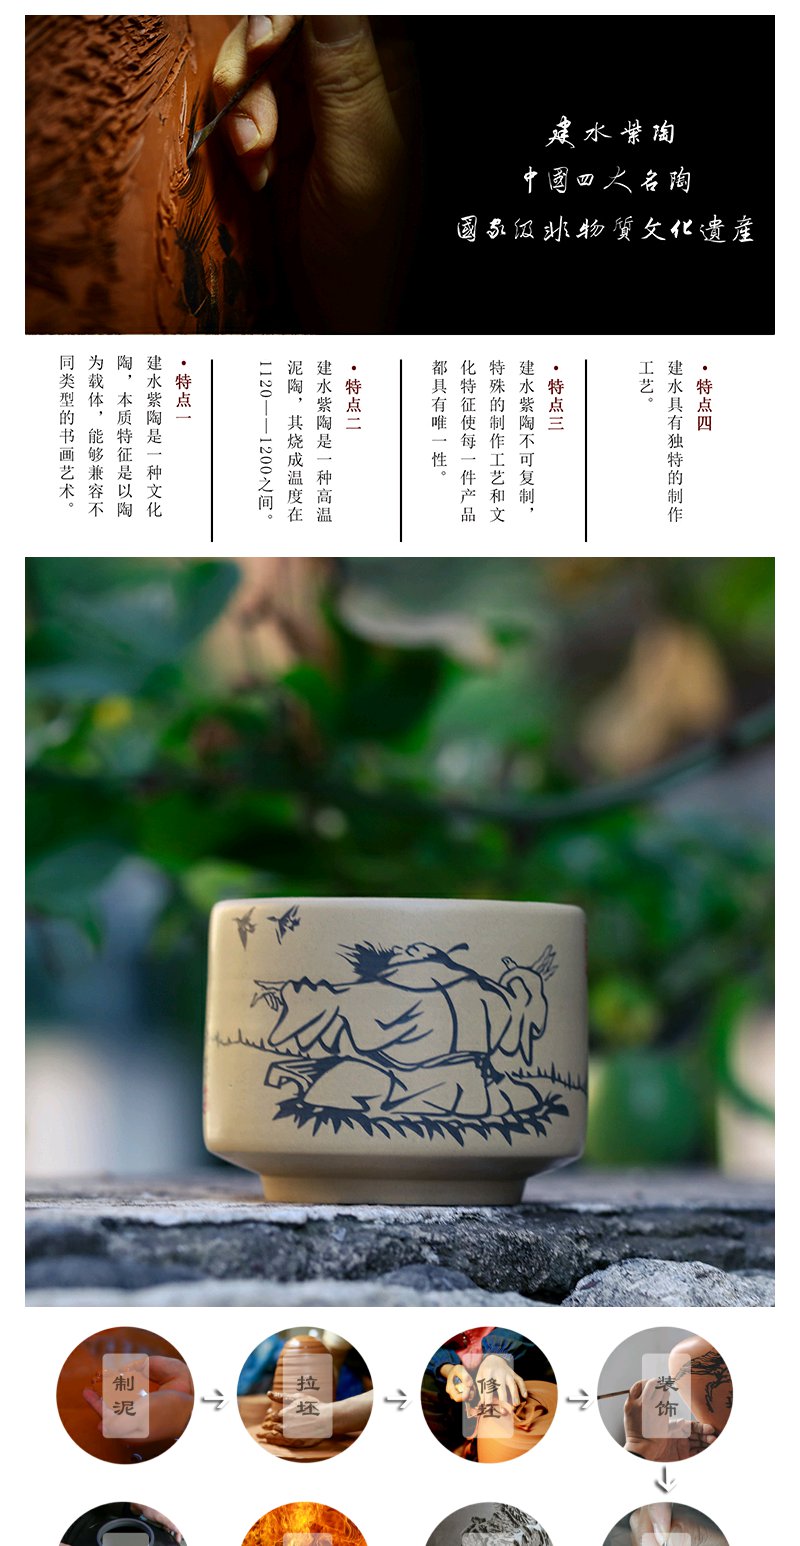 建水紫陶
中國四大名陶
國家级非物質文化遺産
•特点一
建水紫陶是一种文化
陶，本质特征是以陶
为载体，能够兼容不
同类型的书画艺术。
•特点二
建水紫陶是一种高温
泥陶，其烧成温度在
1120——1200之间。
•特点三
建水紫陶不可复制，
特殊的制作工艺和文
化特征使每一件产品
都具有唯一性。
•特点四
建水具有独特的制作
工艺。
制泥
拉坯
修坯
装饰